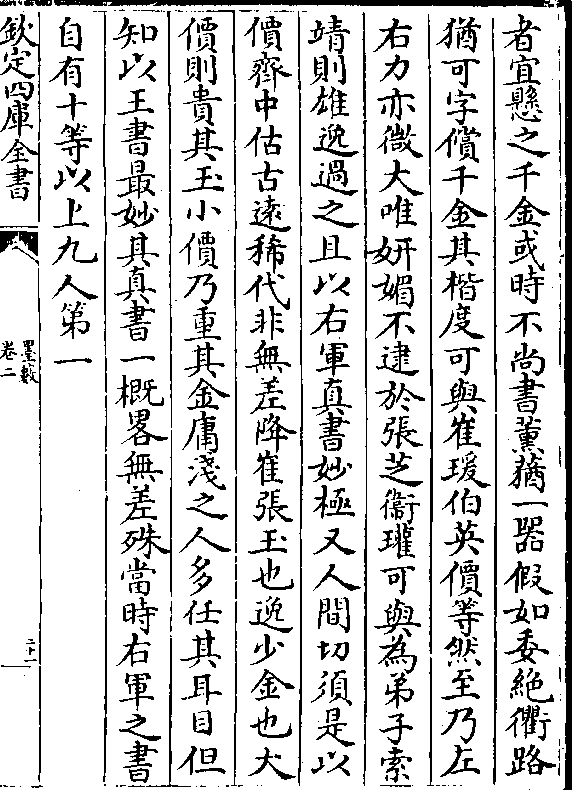 者宜懸之千金或時不尚書薫蕕一器假如委絶衢路
猶可字償千金其楷度可與崔瑗伯英價等然至乃左
右力亦微大唯妍媚不逮於張芝衞瓘可與為弟子索
靖則雄逸過之且以右軍真書妙極又人間切須是以
價齊中估古遠稀代非無差降崔張玉也逸少金也大
價則貴其玉小價乃重其金庸淺之人多任其耳目但
知以王書最妙具真書一概畧無差殊當時右軍之書
自有十等以上九人第一
欽定四庫全書
墨藪
卷二
二十二